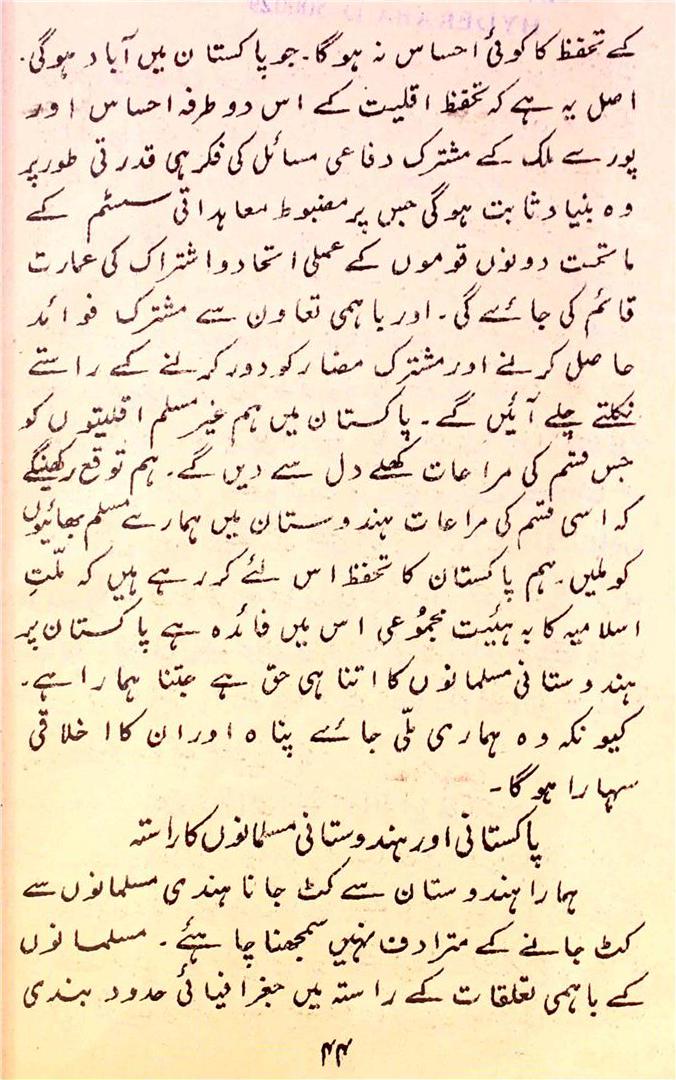 کے تحفظ کا کوئی احساس نہ ہوگا۔ جو پاکستان میں آباد ہوگی۔
اصل یہ ہے کہ تحفظ اقلیت کے اس دو طرفہ احساس اور
پورے ملک کے مشترک دفاعی مسائل کی فکر ہی قدرتی طور پر
وہ بنیاد ثابت ہوگی جس پر مضبوط معاہداتی سسٹم کے
ماتحت دونوں قوموں کے عملی اتحاد و اشتراک کی عمارت
قائم کی جائے گی۔ اور باہمی تعاون سے مشترک فوائد
حاصل کرنے اور مشترک مضار کو دور کرنے کے راستے
نکلتے چلے آئیں گے۔ پاکستان میں ہم غیر مسلم اقلیتوں کو
جس قسم کی مراعات کھلے دل سے دیں گے۔ ہم توقع رکھینگے
کہ اسی قسم کی مراعات ہندوستان میں ہمارے مسلم بھائیوں
کو ملیں۔ ہم پاکستان کا تحفظ اس لئے کر رہے ہیں کہ ملّتِ
اسلامیہ کا بہ ہئیت مجموُعی اس میں فائدہ ہے پاکستان پر
ہندوستانی مسلمانوں کا اتنا ہی حق ہے جتنا ہمارا ہے۔
کیونکہ وہ ہماری ملّی جائے پناہ اور ان کا اخلاقی
سہارا ہوگا۔
پاکستانی اور ہندوستانی مسلمانوں کا راستہ
ہمارا ہندوستان سے کٹ جانا ہندی مسلمانوں سے
کٹ جانے کے مترادف نہیں سمجھنا چاہئے۔ مسلمانوں
کے باہمی تعلقات کے راستہ میں جغرافیائی حدود بندی
۴۴